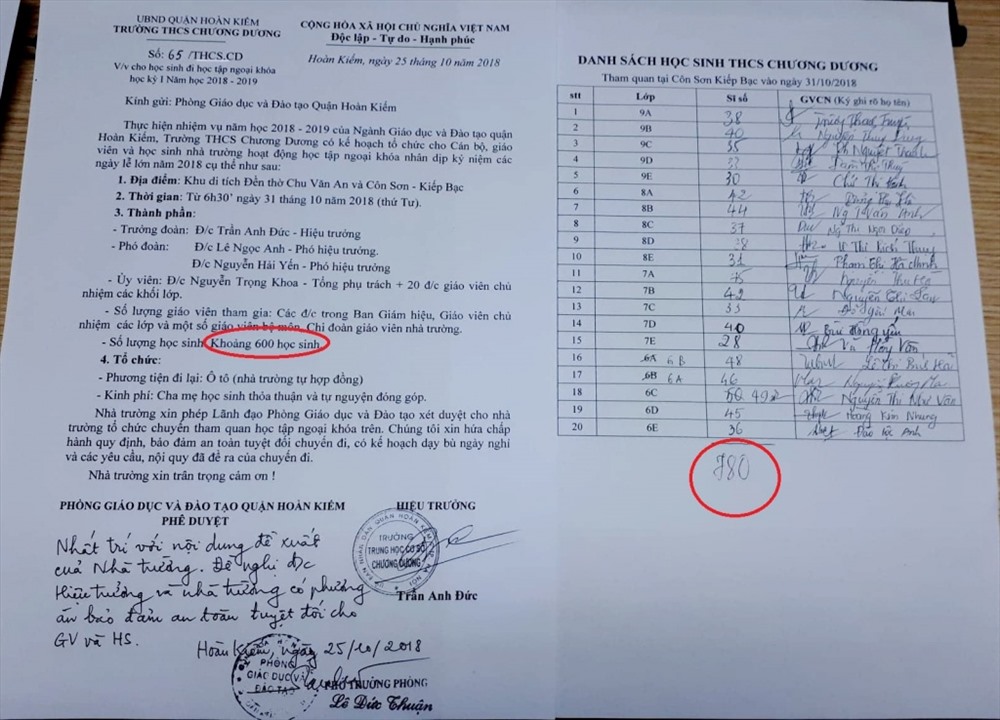 UBND QUẬN HOÀN KIẾM
TRƯỜNG THCS CHƯƠNG DƯƠNG
Số: 65 /THCS.CD
V/v cho học sinh đi học tập ngoại khóa
học kỳ I Năm học 2018 - 2019
CỘNG HÒA XÃ HỘI CHỦ NGHĨA VIỆT NAM
Độc lập - Tự do - Hạnh phúc
Hoàn Kiếm, ngày 25 tháng 10 năm 2018
Kính gửi: Phòng Giáo dục và Đào tạo Quận Hoàn Kiếm
Thực hiện nhiệm vụ năm học 2018 - 2019 của Ngành Giáo dục và Đào tạo quận
Hoàn Kiếm, Trường THCS Chương Dương có kế hoạch tổ chức cho Cán bộ, giáo
viên và học sinh nhà trường hoạt động học tập ngoại khóa nhân dịp kỷ niệm các
ngày lễ lớn năm 2018 cụ thể như sau:
1. Địa điểm: Khu di tích Đền thờ Chu Văn An và Côn Sơn - Kiếp Bạc
2. Thời gian: Từ 6h30' ngày 31 tháng 10 năm 2018 (thứ Tư).
3. Thành phần:
- Trưởng đoàn: Đ/c Trần Anh Đức - Hiệu trưởng
- Phó đoàn: Đ/c Lê Ngọc Anh - Phó hiệu trưởng.
Đ/c Nguyễn Hải Yến - Phó hiệu trưởng
- Ủy viên: Đ/c Nguyễn Trọng Khoa - Tổng phụ trách + 20 đ/c giáo viên chủ
nhiệm các khối lớp.
- Số lượng giáo viên tham gia: Các đ/c trong Ban Giám hiệu, Giáo viên chủ
nhiệm các lớp và một số giáo viên bộ môn, Chi đoàn giáo viên nhà trường.
- Số lượng học sinh: Khoảng 600 học sinh
4. Tổ chức:
- Phương tiện đi lại: Ô tô (nhà trường tự hợp đồng)
- Kinh phí: Cha mẹ học sinh thỏa thuận và tự nguyện đóng góp.
Nhà trường xin phép Lãnh đạo Phòng Giáo dục và Đào tạo xét duyệt cho nhà
trường tổ chức chuyến tham quan học tập ngoại khóa trên. Chúng tôi xin hứa chấp
hành quy định, bảo đảm an toàn tuyệt đối chuyến đi, có kế hoạch dạy bù ngày nghỉ
và các yêu cầu, nội quy đã đề ra của chuyến đi.
Nhà trường xin trân trọng cảm ơn !
PHÒNG GIÁO DỤC VÀ ĐÀO TẠO QUẬN HOÀN KIẾM
PHÊ DUYỆT
Nhất trí với nội dung đề xuất
của Nhà trường. Đề nghị đ/c
Hiệu trưởng và nhà trường có phương
án bảo đảm an toàn tuyệt đối cho
GV và HS.
Hoàn Kiếm, ngày 25/10/2018
PHÒNG
GIÁO DỤC VÀ
ĐÀO TẠO
PHÓ TRƯỞNG PHÒNG
Lê Đức Thuận
HIỆU TRƯỞNG
TRƯỜNG
TRUNG HỌC CƠ SỞ
CHƯƠNG DƯƠNG
Trần Anh Đức
DANH SÁCH HỌC SINH THCS CHƯƠNG DƯƠNG
Tham quan tại Côn Sơn Kiếp Bạc vào ngày 31/10/2018
stt Lớp Sĩ số GVCN (Ký ghi rõ họ tên)
1 9A 38
2 9B 40
3 9C 35
4 9D
5 9E 30
6 8A 42
7 8B 44 Ng T Vân Anh
8 8C 37
9 8D 28
10 8E 31
11 7A
12 7B 42
13 7C 33
14 7D 40
15 7E 28
16 6A 6B 48
17 6B 6A 46
18 6C Nguyễn Thị Như Vân
19 6D 45 Hoàng Kim Nhung
20 6E 36 Đào Lộc Anh
780